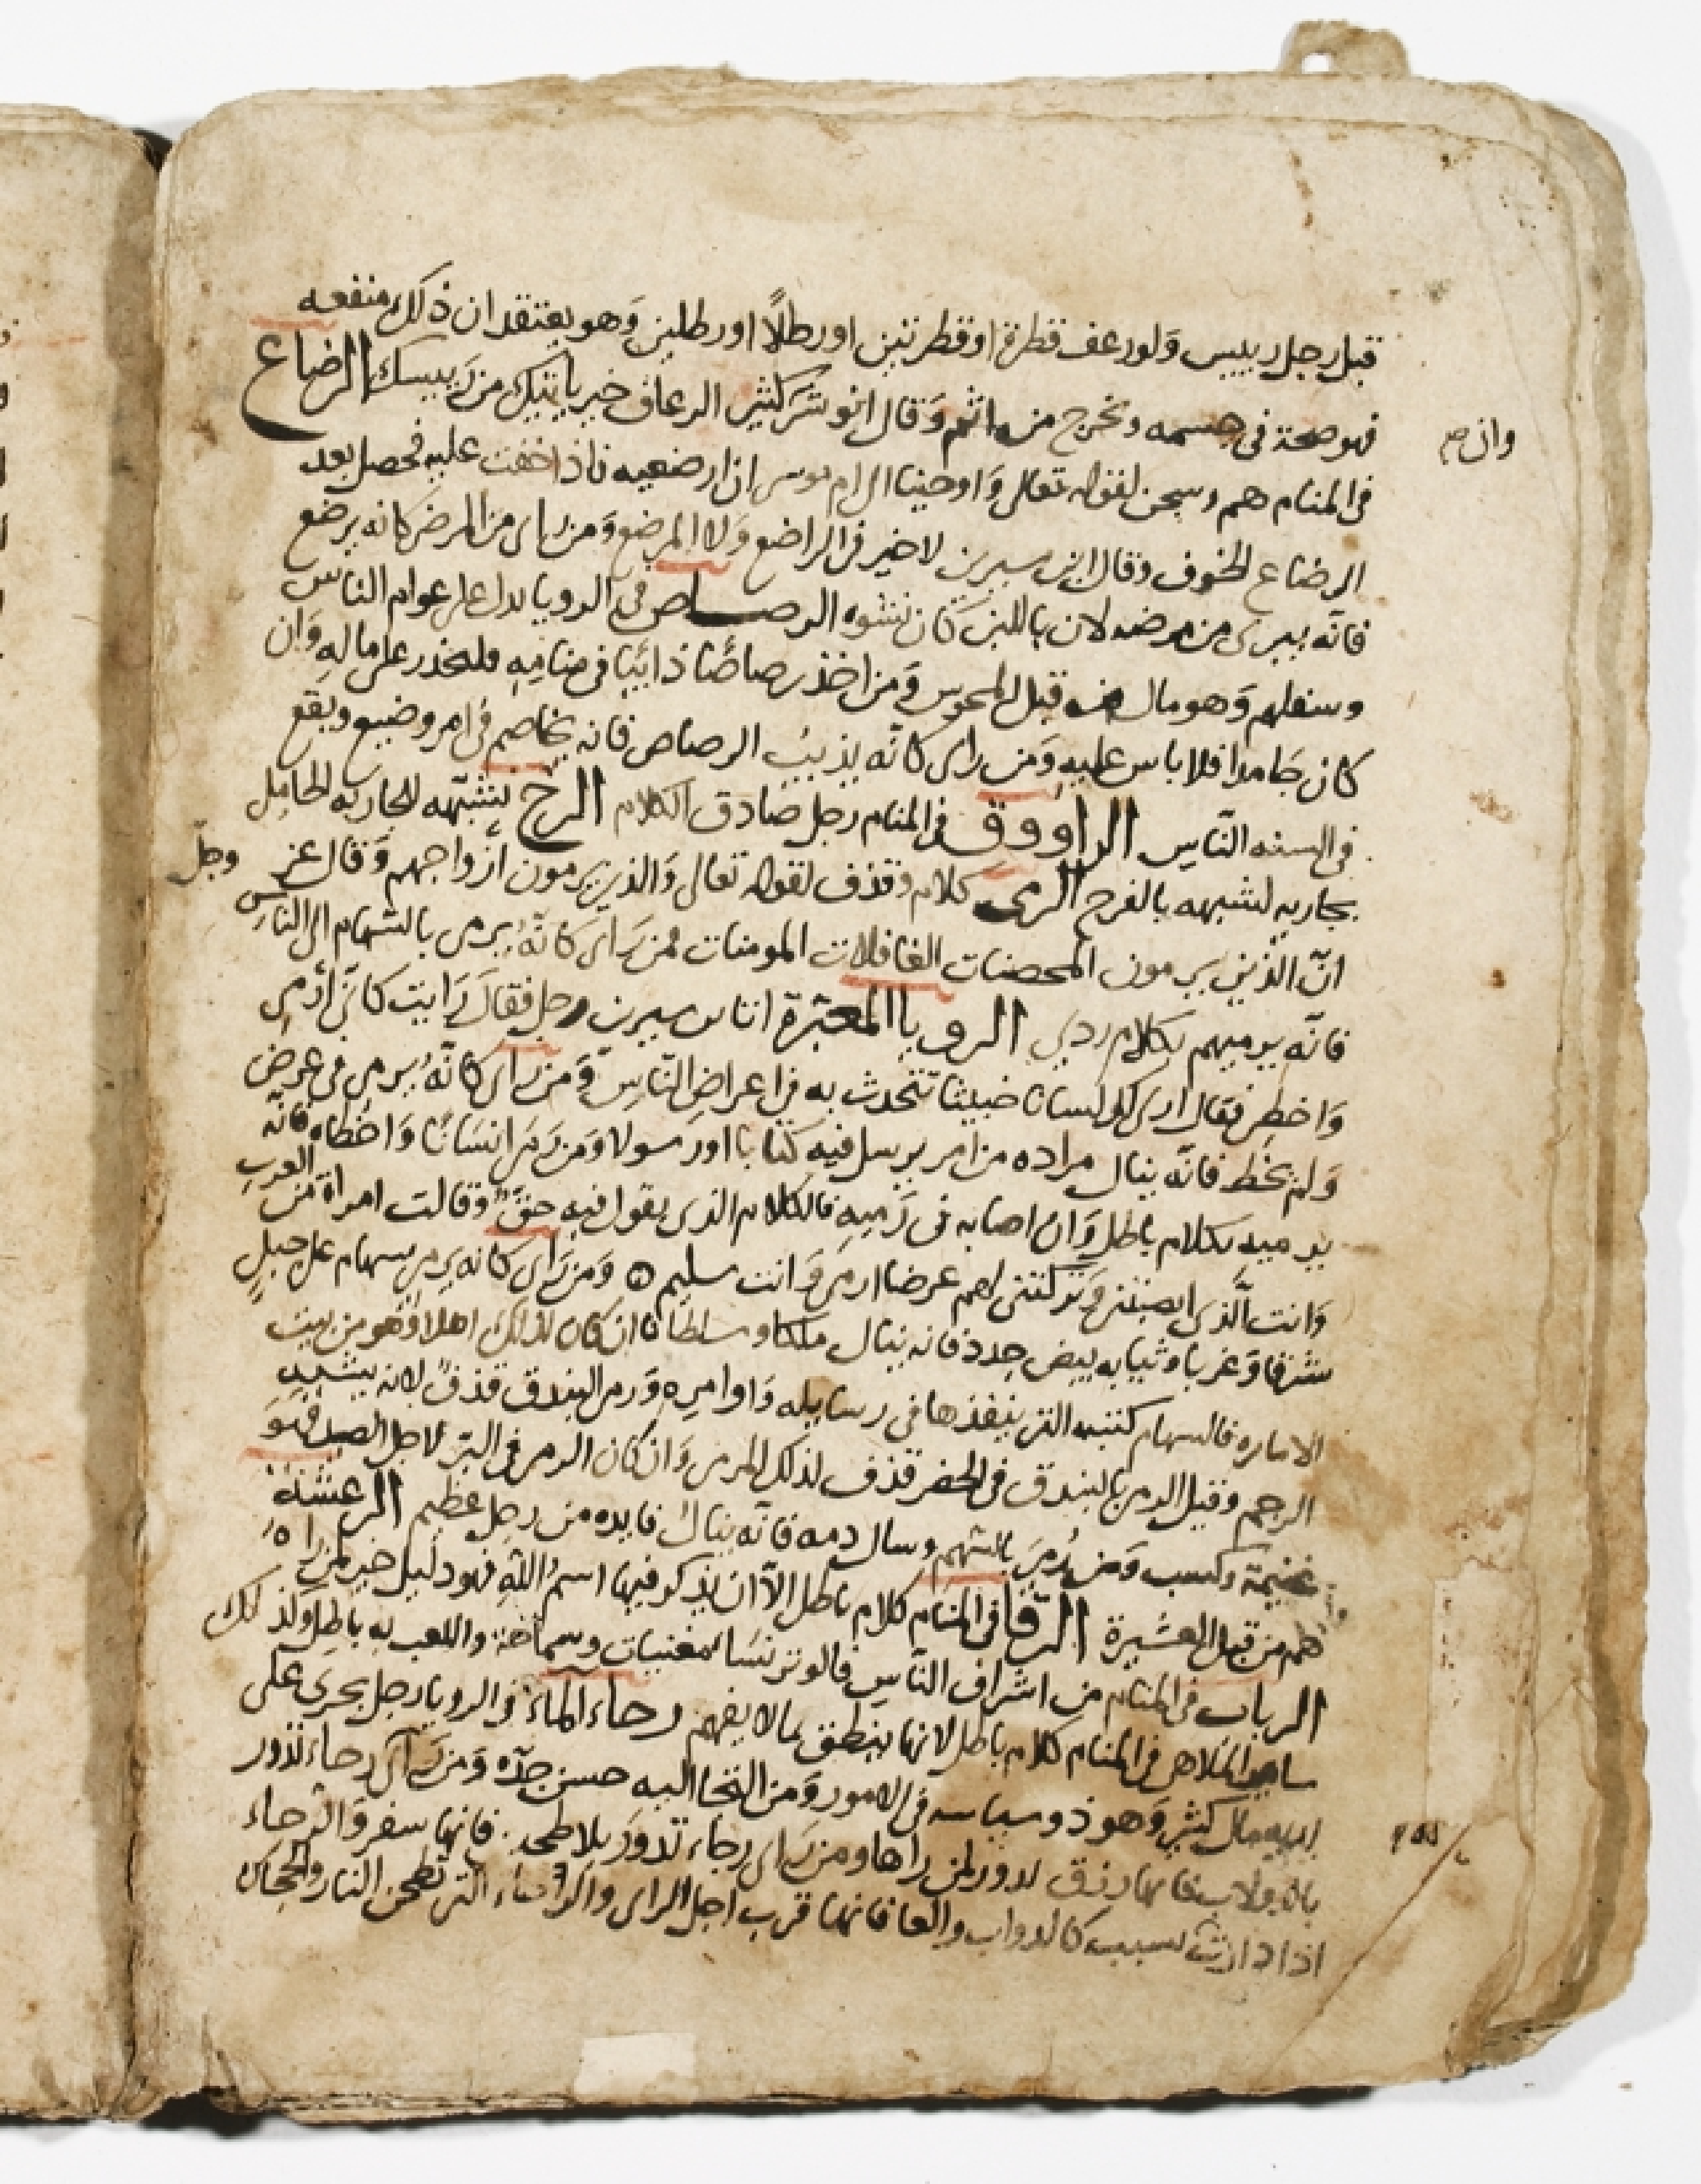 قبل رجل رييس وَلو رعف قطرة او قطرتين او رطلًا او رطلين وَهو يعتقد ان ذلك منفعه
فهو صحة فى جسمه وتخرج من اثم وَقال انو شر كثير الرعاف خير ياتيك من رَييسك الرضاع
وان ص
فى المنام هم وسجن لقوله تعالى وَاوحينا الى ام موسى ان ارضعيه فاذا خفت عليه فحصل بعد
الرضاع الخوف وقال ابن سيرين لا خير فى الراضع وَلا المرضع وَمن راى من المرض كانه يرضع
فانّه يبرى من مرضه لان باللبن كان نشوه الرصاص فى الرويا يدل على عوام الناس
وسفلهم وَهو مال من قبل المجوس وَمن اخذ رصاصًا ذائبًا فى منامِهِ فليحذر على مالهِ وَان
كان جَامدا فلا باس عليهِ وَمن راى كانّه يذيبُ الرصاص فانه يخاصم فى امر وضيع ويقع
فى السنه النّاس الراووق فى المنام رجل صَادق الكلام الرخ
يحاربه لشبهه بالفرج الرمى كلام وقذف لقوله تعالى وَالذين يرمون أزواجهم وَقال عز وجلّ
انّ الّذين يَرمون المحصنات الغافلات المومنات فمن رَاى كانّهُ يرمى بالسّهام الى الناس
فانّه يرميهم بكلام ردي الرويا المعتبرة اتا ابن سيرين رجل فقالَ رَايت كانّى أرمى
وَاخطى فقال ارى لك لسانا خبيثا تتحدث به فى اعراض النّاس وَمن رَاى كانّهُ يرمى فى عرض
وَلم يخط فانّه ينال مراده من امر يرسل فيه كتابا او رَسولا وَمن رَمى انسَانًا وَاخطاه فانّه
يرميه بكلام باطل وَان اصابه فى رَميهِ فالكلام الذى يقول فيه حقّ وَقالت امراة من العرب
وَانت الّذى اصبتنى وَتركتنى لهم عرضا ارمى وَانت سليم ه وَمن رَاى كانه يرمى سهام على جبل
شرقا وَغربا وثيابه بيض جدد فانه ينال ملكا وسلطانا ان كان لذلك اهلا اوْهو من بيت
الاماره فالسهام كتبه التى ينفذها فى رسايله وَاوامره وَرمى البندق قذفٌ لانه يشبه
الرجم وقيل الرمى بالبندق فى الحضر قذف لذلك المرمى وَان كان الرمى فى البّر لاجل الصيد فهوَ
غنيمة وكسب وَمن رُمىَ بالسّهم وسال دمه فانّه ينالُ فايده من رجل عظيم الرعشةُ
هم من قبل العشيرة الرقا فى المنام كلام باطل الّا ان يذكر فيها اسمُ اللّه فهو دليل خير لمن راهُ
الرباب فى المنام من اشراف النّاس فالوتر نسَا مغنيات وسماخة واللعب به باطل ولذلك
ساير الملاهى فى المنام كلام باطل لانها ينطق بما لا يفهم رحاء الماءُ فى الرويا رجل يجرى على
يديه مال كثير وَهو ذو سياسه فى الامور وَمن التجا اليه حسن جدّه وَمن رَاى رحاء تدور
بالدولاب فانها رزق يدور لمن راها ومن رَاى رحاء تدور بلا طحن فانها سفر وَالرحاء
اذا دارت بسبب كالدواب والعا فانها قرب اجل الراى والرحاء التى تطحن النار والحجاره